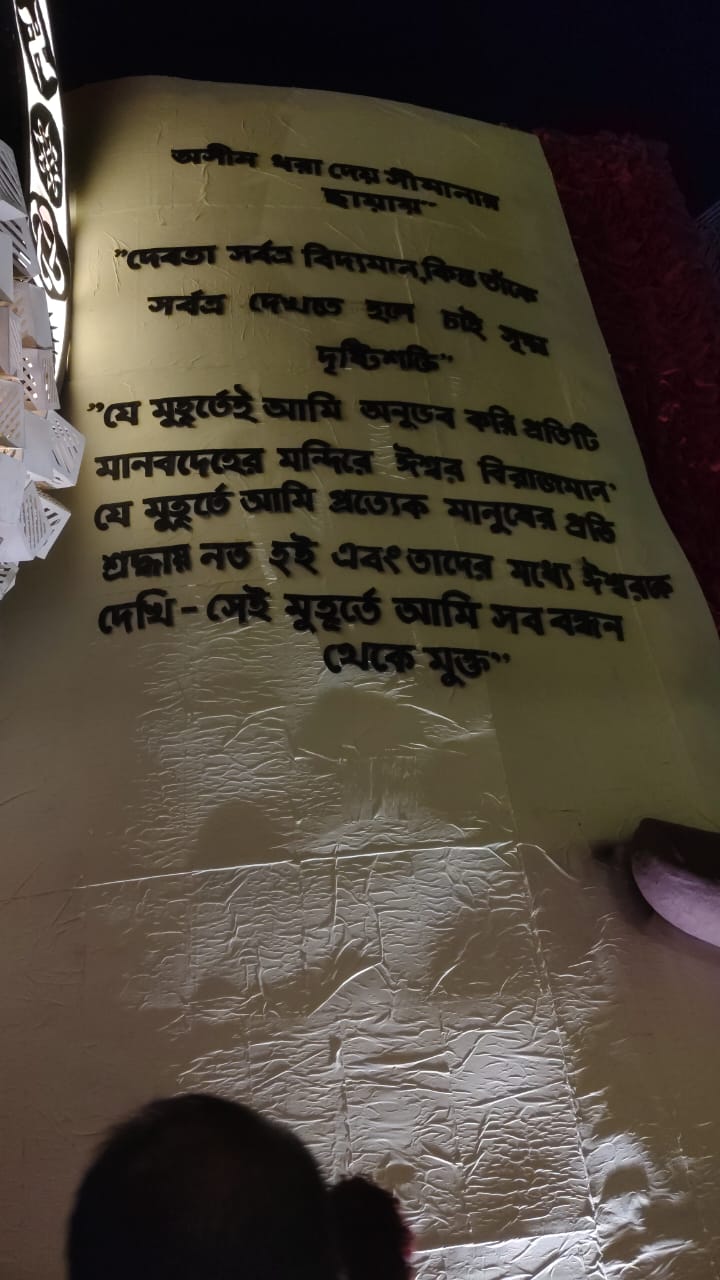 অসীম ধরা দেয় সীমানার
ছায়ায়”
”দেবতা সর্বত্র বিদ্যমান,কিন্তু তাঁকে
সর্বত্র দেখতে হলে চাই সূক্ষ্ম
দৃষ্টিশক্তি”
”যে মুহূর্তেই আমি অনুভব করি প্রতিটি
মানবদেহের মন্দিরে ঈশ্বর বিরাজমান'
যে মুহূর্তে আমি প্রত্যেক মানুষের প্রতি
শ্রদ্ধায় নত হই এবং তাদের মধ্যে ঈশ্বরকে
দেখি - সেই মুহূর্তে আমি সব বন্ধন
থেকে মুক্ত”